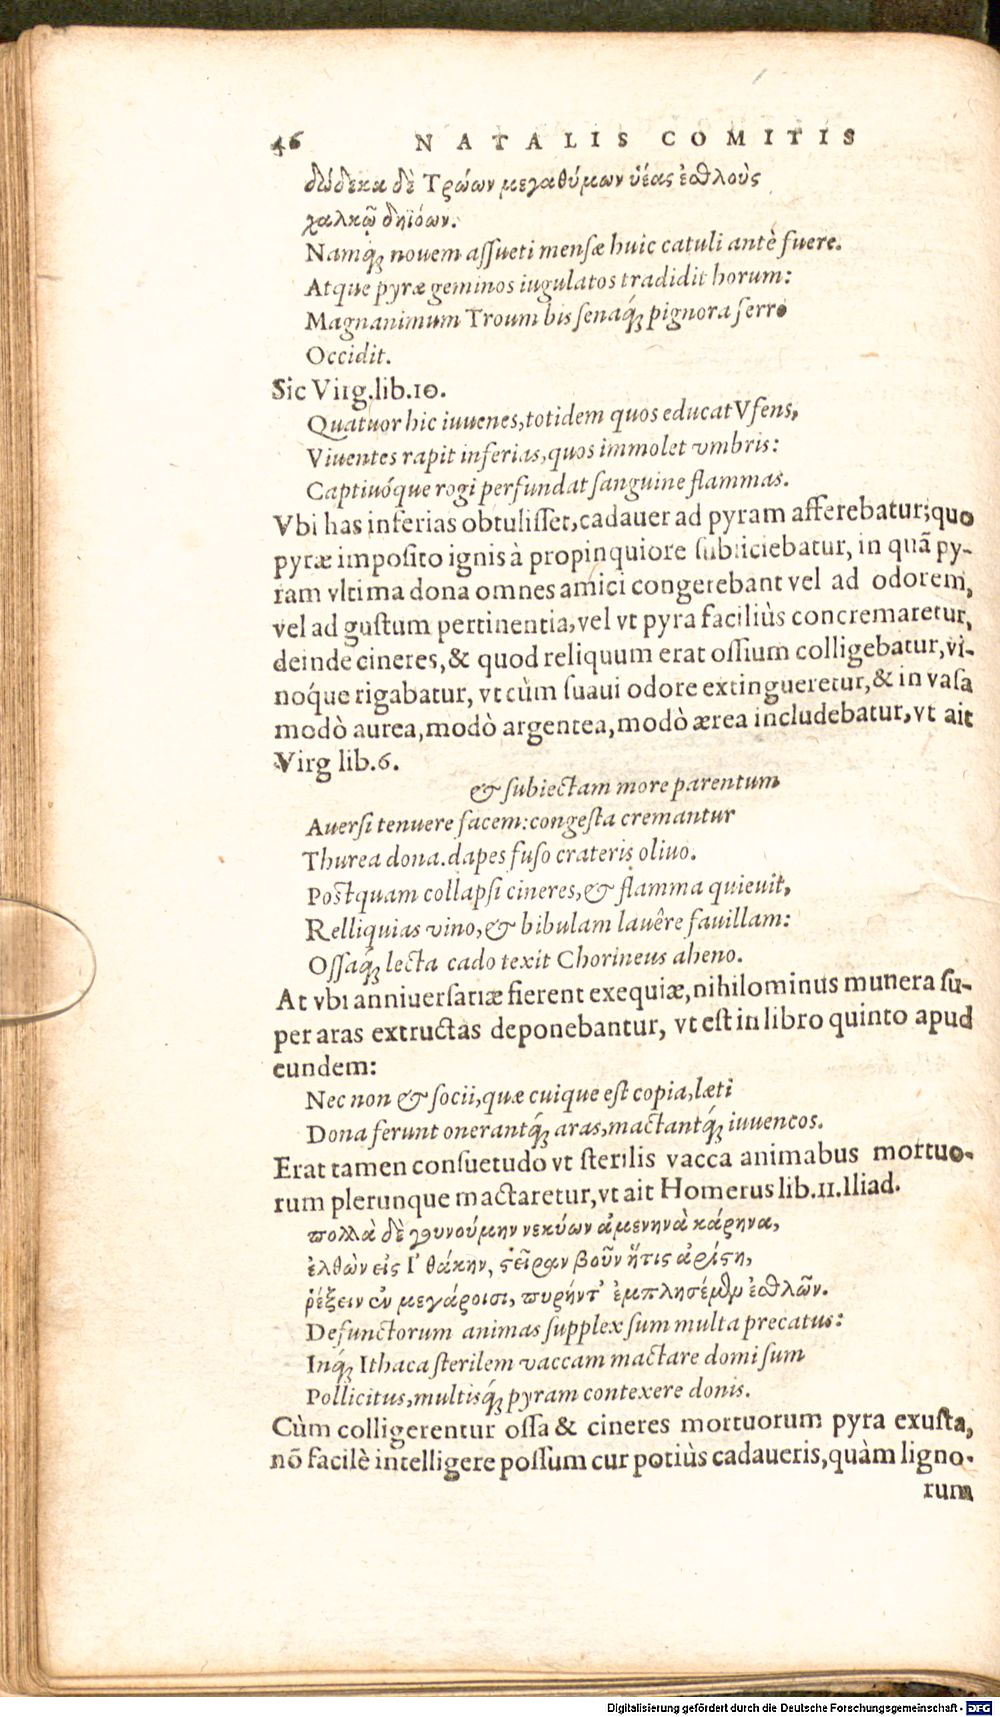 46 NATALIS COMITIS
δώδεκα δὲ Τρώων μεγαθύμων ὑέας ἐσθλοὺς
χαλκῷ δηϊόων.
Namq́; nouem assueti mensæ huic catuli antè fuere.
Atque pyræ geminos iugulatos tradidit horum:
Magnanimum Troum bis senaq́; pignora ferro
Occidit.
Sic Virg.lib.10.
Quatuor hic iuuenes,totidem quos educat Vfens,
Viuentes rapit inferias,quos immolet vmbris:
Captiuóque rogi perfundat sanguine flammas.
Vbi has inferias obtulisset,cadauer ad pyram afferebatur;quo
pyræ imposito ignis à propinquiore subiiciebatur, in quã py-
ram vltima dona omnes amici congerebant vel ad odorem,
vel ad gustum pertinentia,vel vt pyra faciliùs concremaretur,
deinde cineres,& quod reliquum erat ossium colligebatur,vi-
nóque rigabatur, vt cùm suaui odore extingueretur,& in vasa
modò aurea,modò argentea,modò ærea includebatur,vt ait
Virg lib.6.
& subiectam more parentum
Auersi tenuere facem:congesta cremantur
Thurea dona.dapes fuso crateris oliuo.
Postquam collapsi cineres,& flamma quieuit,
Relliquias vino,& bibulam lauêre fauillam:
Ossaq́; lecta cado texit Chorineus aheno.
At vbi anniuersariæ fierent exequiæ,nihilominus munera su-
per aras extructas deponebantur, vt est in libro quinto apud
eundem:
Nec non & socii,quæ cuique est copia,læti
Dona ferunt onerantq́; aras,mactantq́; iuuencos.
Erat tamen consuetudo vt sterilis vacca animabus mortuo-
rum plerunque mactaretur,vt ait Homerus lib.11.Iliad.
πολλὰ δὲ γουνούμην νεκύων ἀμενηνὰ κάρηνα,
ἐλθὼν εἰς Ἰθάκην, στεῖραν βοῦν ἥτις ἀρίστη,
ῥέξειν ἐν μεγάροισι, πυρήντ' ἐμπλησέμεν ἐσθλῶν.
Defunctorum animas supplex sum multa precatus:
Inq́; Ithaca sterilem vaccam mactare domi sum
Pollicitus,multisq́; pyram contexere donis.
Cùm colligerentur ossa & cineres mortuorum pyra exusta,
nõ facilè intelligere possum cur potiùs cadaueris,quàm ligno-
rum
Digitalisierung gefördert durch die Deutsche Forschungsgemeinschaft - DFG